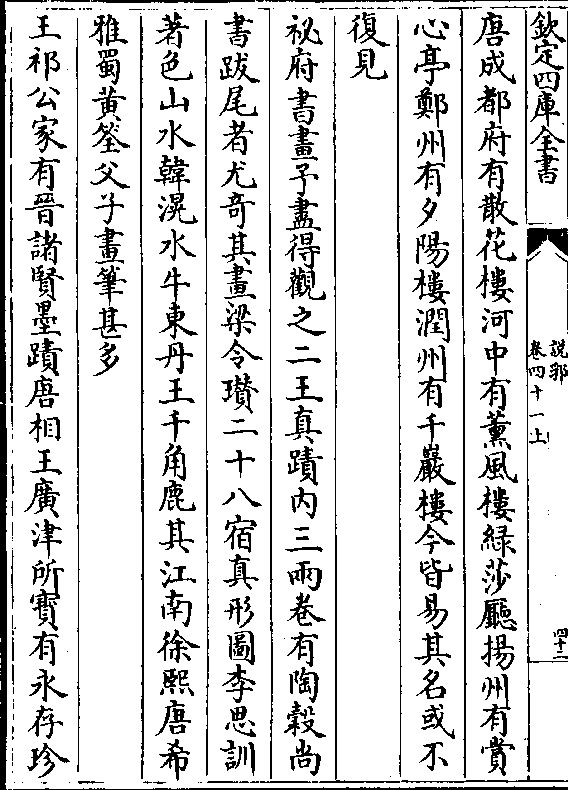 欽定四庫全書
說郛
卷四十一上
四十二
唐成都府有散花樓河中有薫風樓緑莎廳揚州有賞
心亭鄭州有夕陽樓潤州有千巖樓今皆易其名或不
復見
祕府書畫予盡得觀之二王真蹟内三兩卷有陶榖尚
書跋尾者尤竒其畫梁令瓚二十八宿真形圖李思訓
著色山水韓滉水牛東丹王千角鹿其江南徐熙唐希
雅蜀黄筌父子畫筆甚多
王祁公家有晉諸賢墨蹟唐相王廣津所寳有永存珍